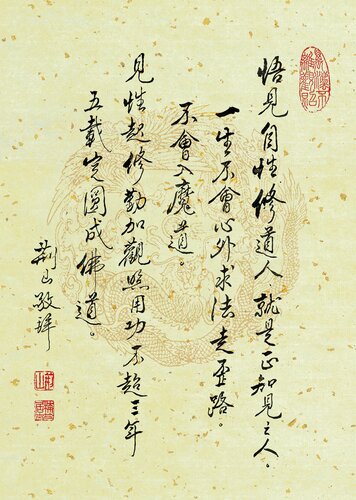 悟見自性修道人，就是正知見之人。
一生不會心外求法走歪路。
不會入魔道。
見性起修勤加觀照用功不超三年
五載定圓成佛道。
荆山敬拜